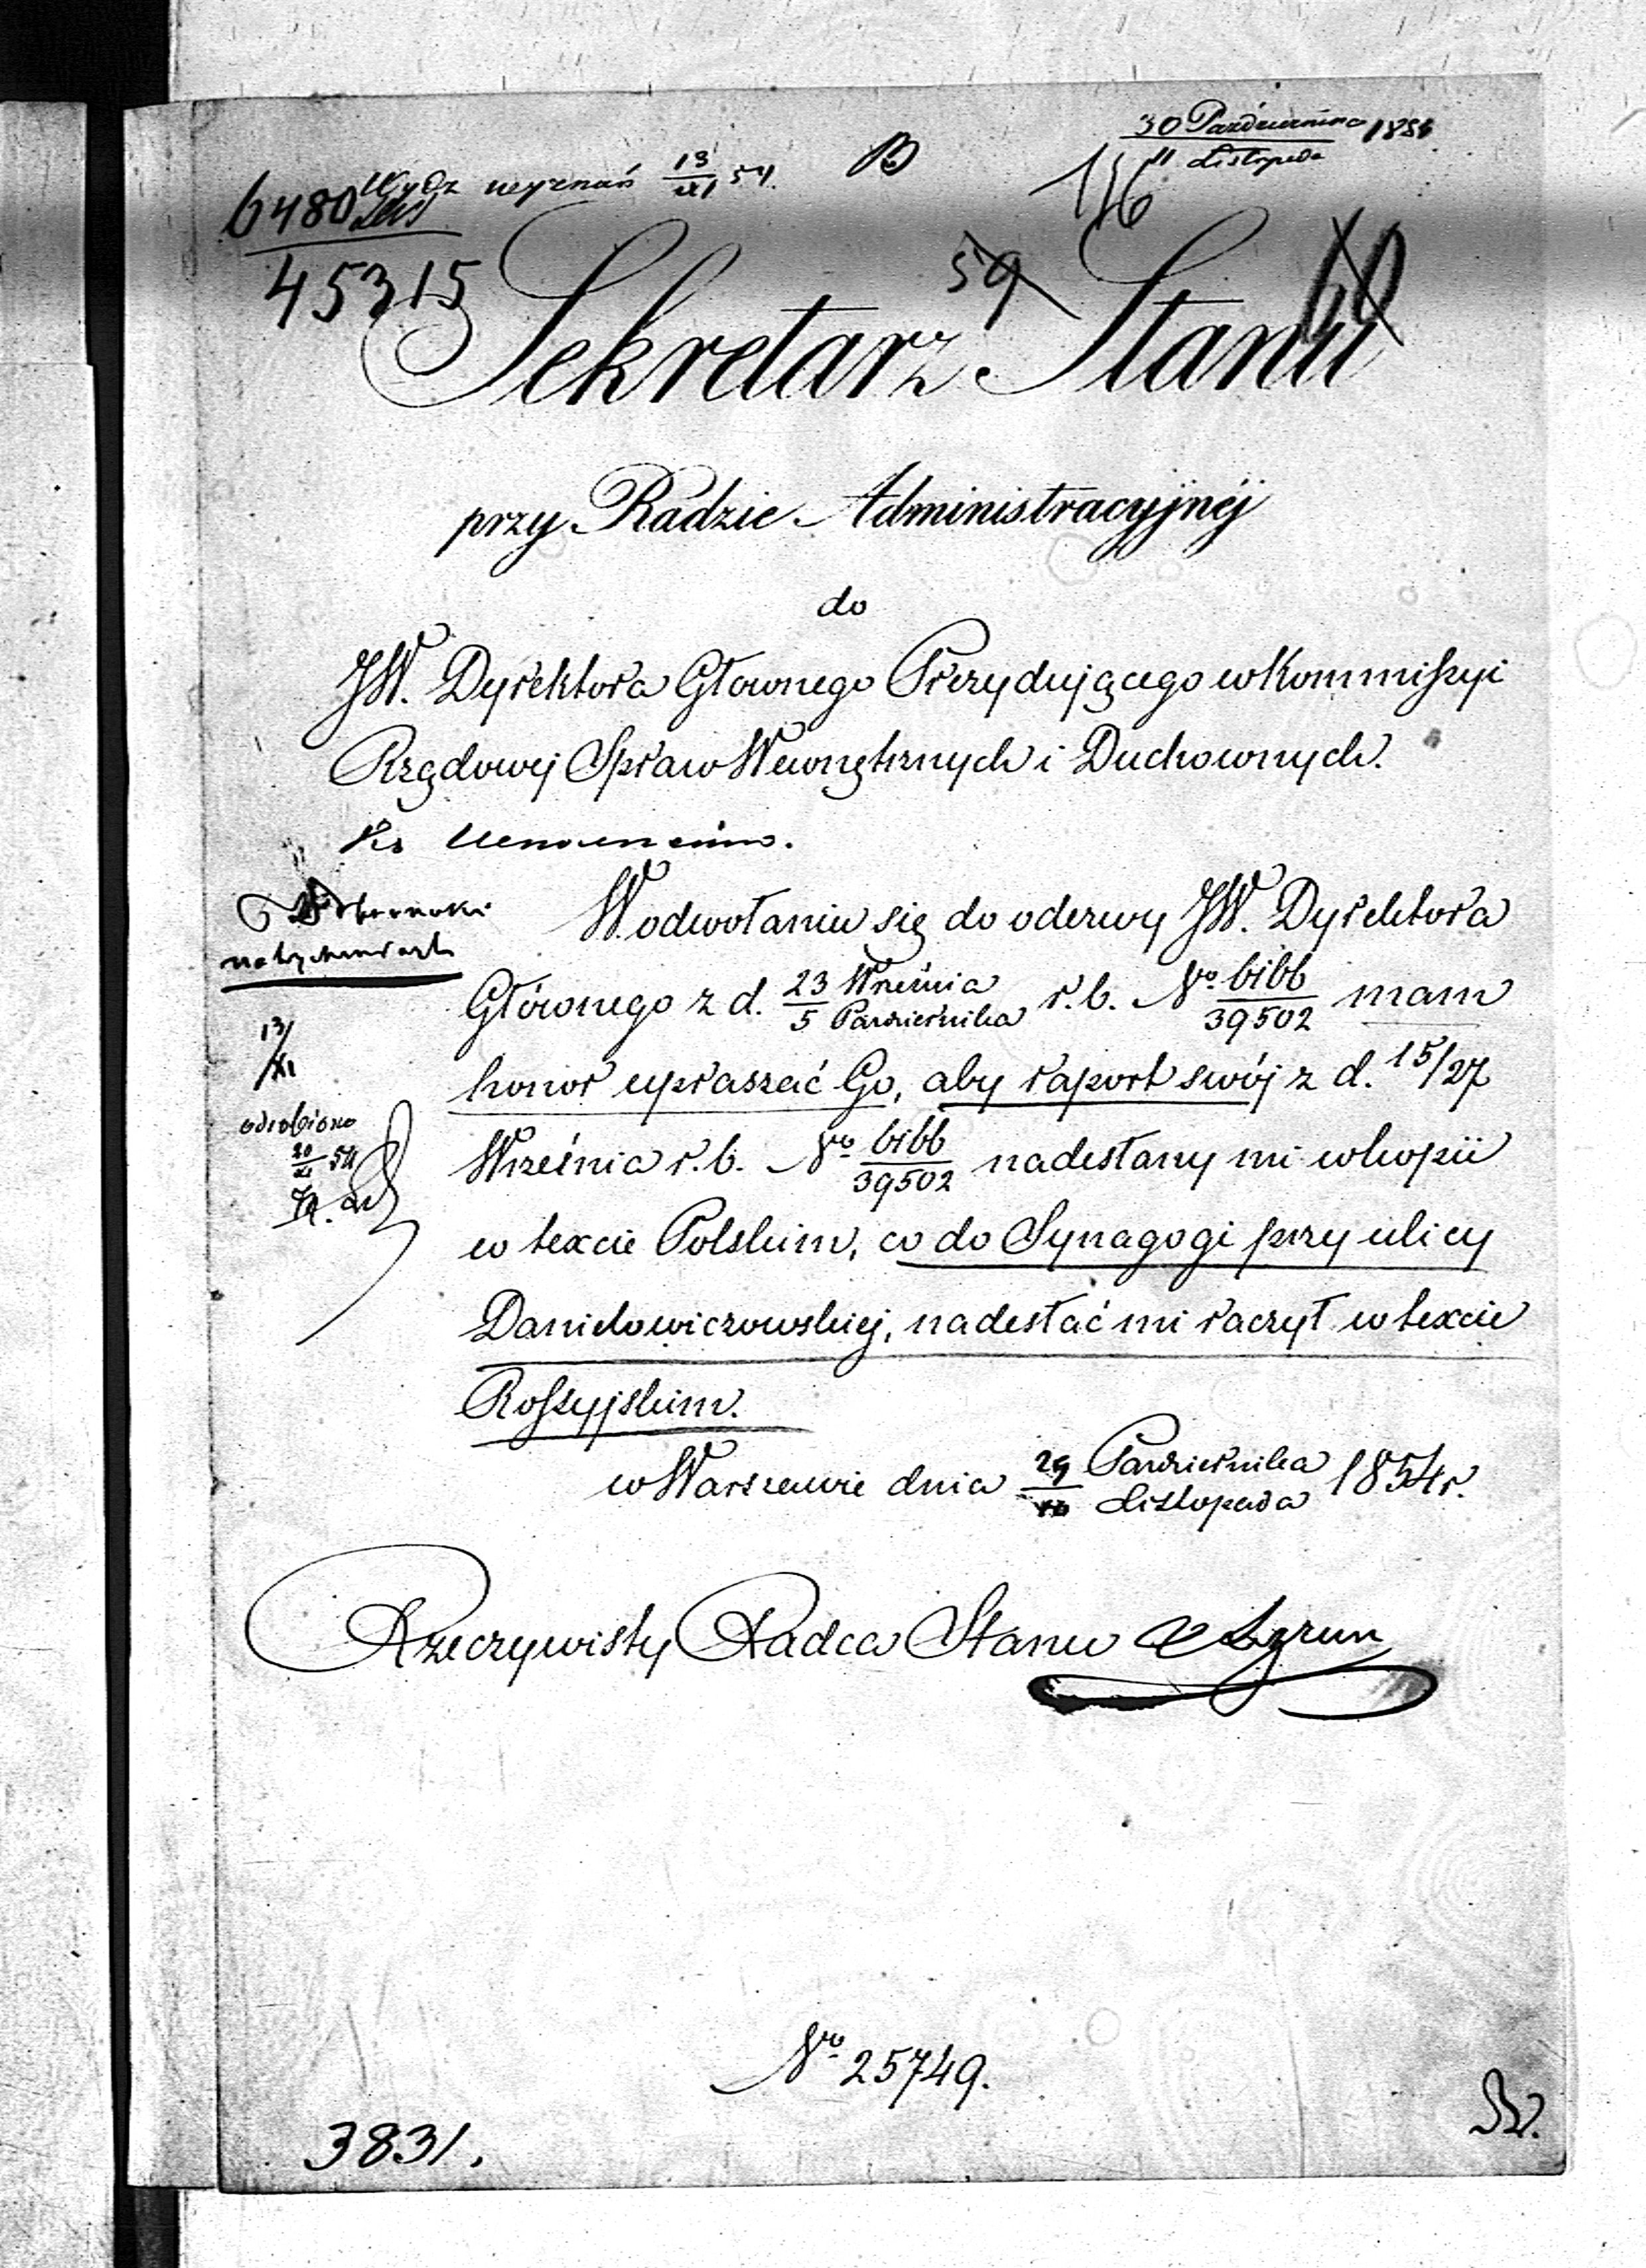 30 Października 1854
11 Listopada
B
Wydz wyznań 13/XI 54.
6480
45315
116
59
60
Sekretarz Stanu
przy Radzie Administracyjnéj
do
JW. Dyrektora Głownego Prezydującego w Kommissyi
Rządowej Spraw Wewnętrznych i Duchownych.
natychmiast
13/XI
odrobiono
20/XI 54
W odwołaniu się do odezwy JW. Dyrektora
Głównego z d. 23 Września / 5 Października r. b. No 6166/39502 mam
honor upraszać Go, aby raport swój z d. 15/27
Września r. b. No 6166/39502 nadesłany mi w kopii
w texcie Polskim, co do Synagogi przy ulicy
Daniłowiczowskiej, nadesłać mi raczył w texcie
Rossyjskim.
w Warszawie dnia 29 Października / 10 Listopada 1854 r.
Rzeczywisty Radca Stanu
No 25749.
3831.